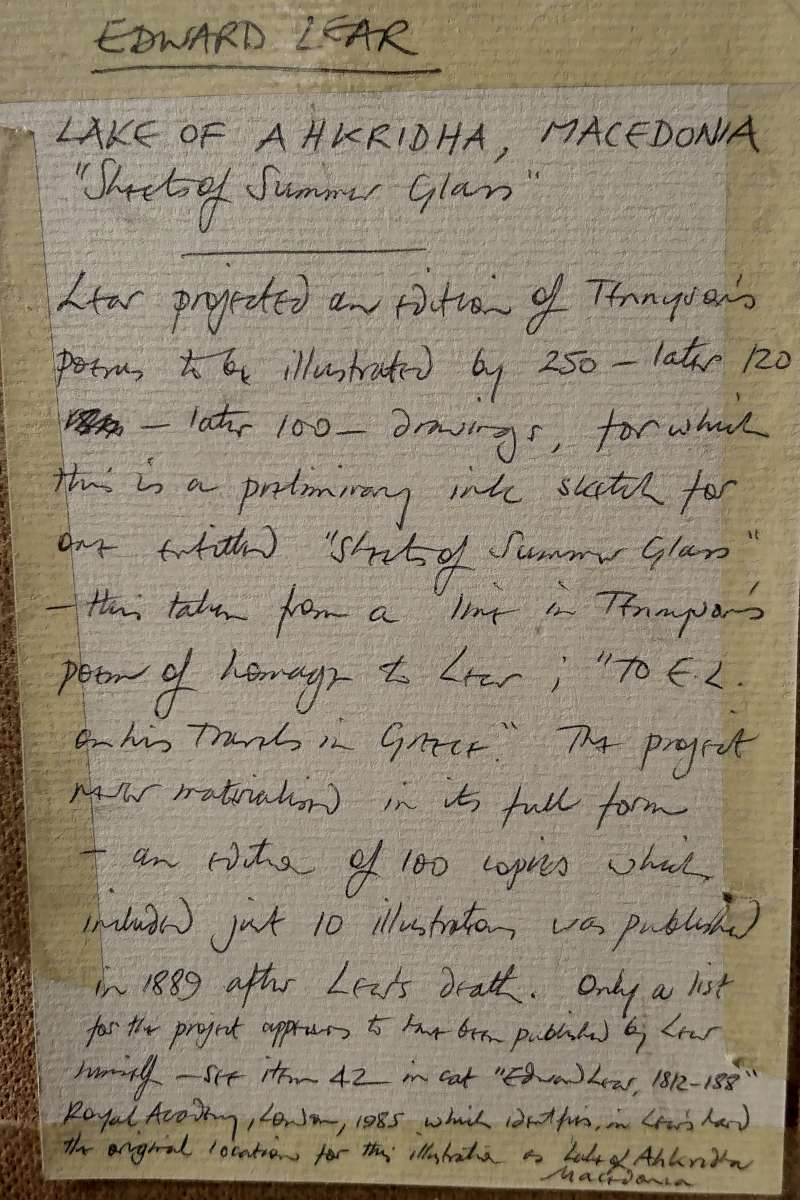 EDWARD LEAR
LAKE OF AHKRIDHA, MACEDONIA
"Sheets of Summer Glass"
Lear projected an edition of Tennyson's
poems to be illustrated by 250 - later 120
- later 100 - drawings, for which
this is a preliminary ink sketch for
one entitled "Sheets of Summer Glass"
- this taken from a line in Tennyson's
poem of homage to Lear ; "TO E.L.
on his Travels in Greece". The project
never materialised in its full form
- an edition of 100 copies which
included just 10 illustrations was published
in 1889 after Lear's death. Only a list
for the project appears to have been published by Lear
himself - see item 42 in cat "Edward Lear, 1812-188"
Royal Academy, London, 1985 which identifies, in Lear's hand
the original location for this illustration as Lake of Ahkridha
Macedonia